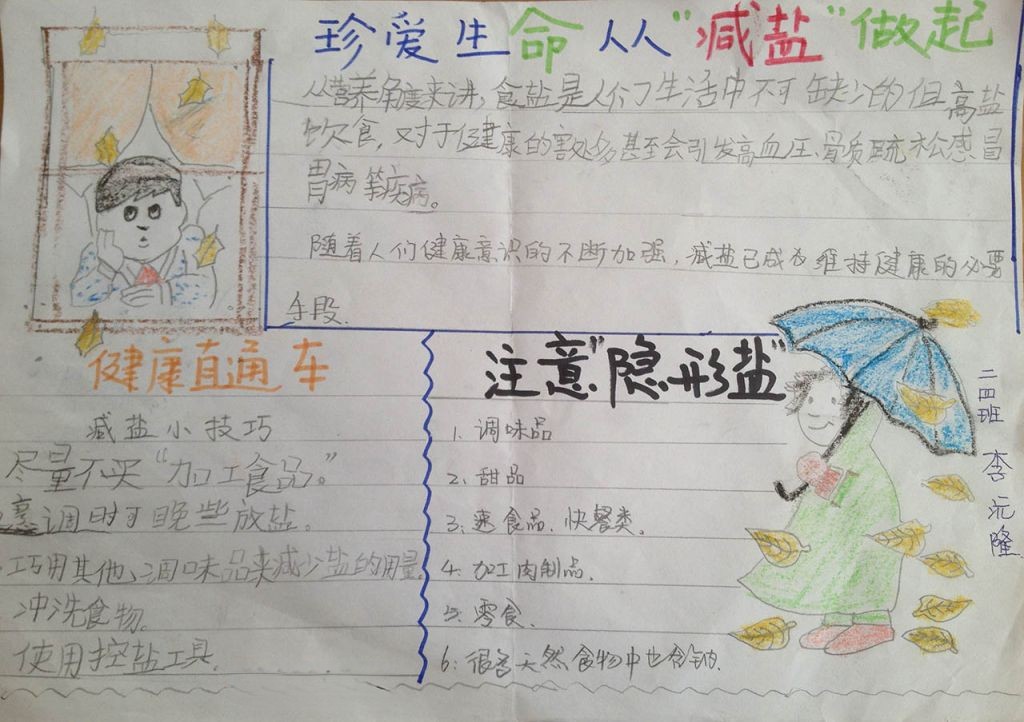 珍爱生命 从"减盐"做起
从营养角度来讲，食盐是人们生活中不可缺少的但高盐
饮食，对于促健康的害处多甚至会引发高血压、骨质疏松感冒
胃病等疾病。
随着人们健康意识的不断加强，减盐已成为维持健康的必要
手段.
健康直通车
减盐小技巧
尽量不买"加工食品。"
烹调时可晚些放盐。
巧用其他调味品来减少盐的用量
冲洗食物。
使用控盐工具.
注意"隐形盐"
1. 调味品
2. 甜品
3. 速食品、快餐类。
4. 加工肉制品.
5. 零食.
6: 很多天然食物中也含钠.
二四班 李沅隆